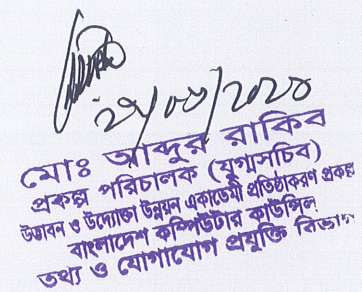 মোঃ আব্দুর রাকিব
প্রকল্প পরিচালক (যুগ্মসচিব)
উদ্ভাবন ও উদ্যোক্তা উন্নয়ন একাডেমী প্রতিষ্ঠাকরণ প্রকল্প
বাংলাদেশ কম্পিউটার কাউন্সিল
তথ্য ও যোগাযোগ প্রযুক্তি বিভাগ